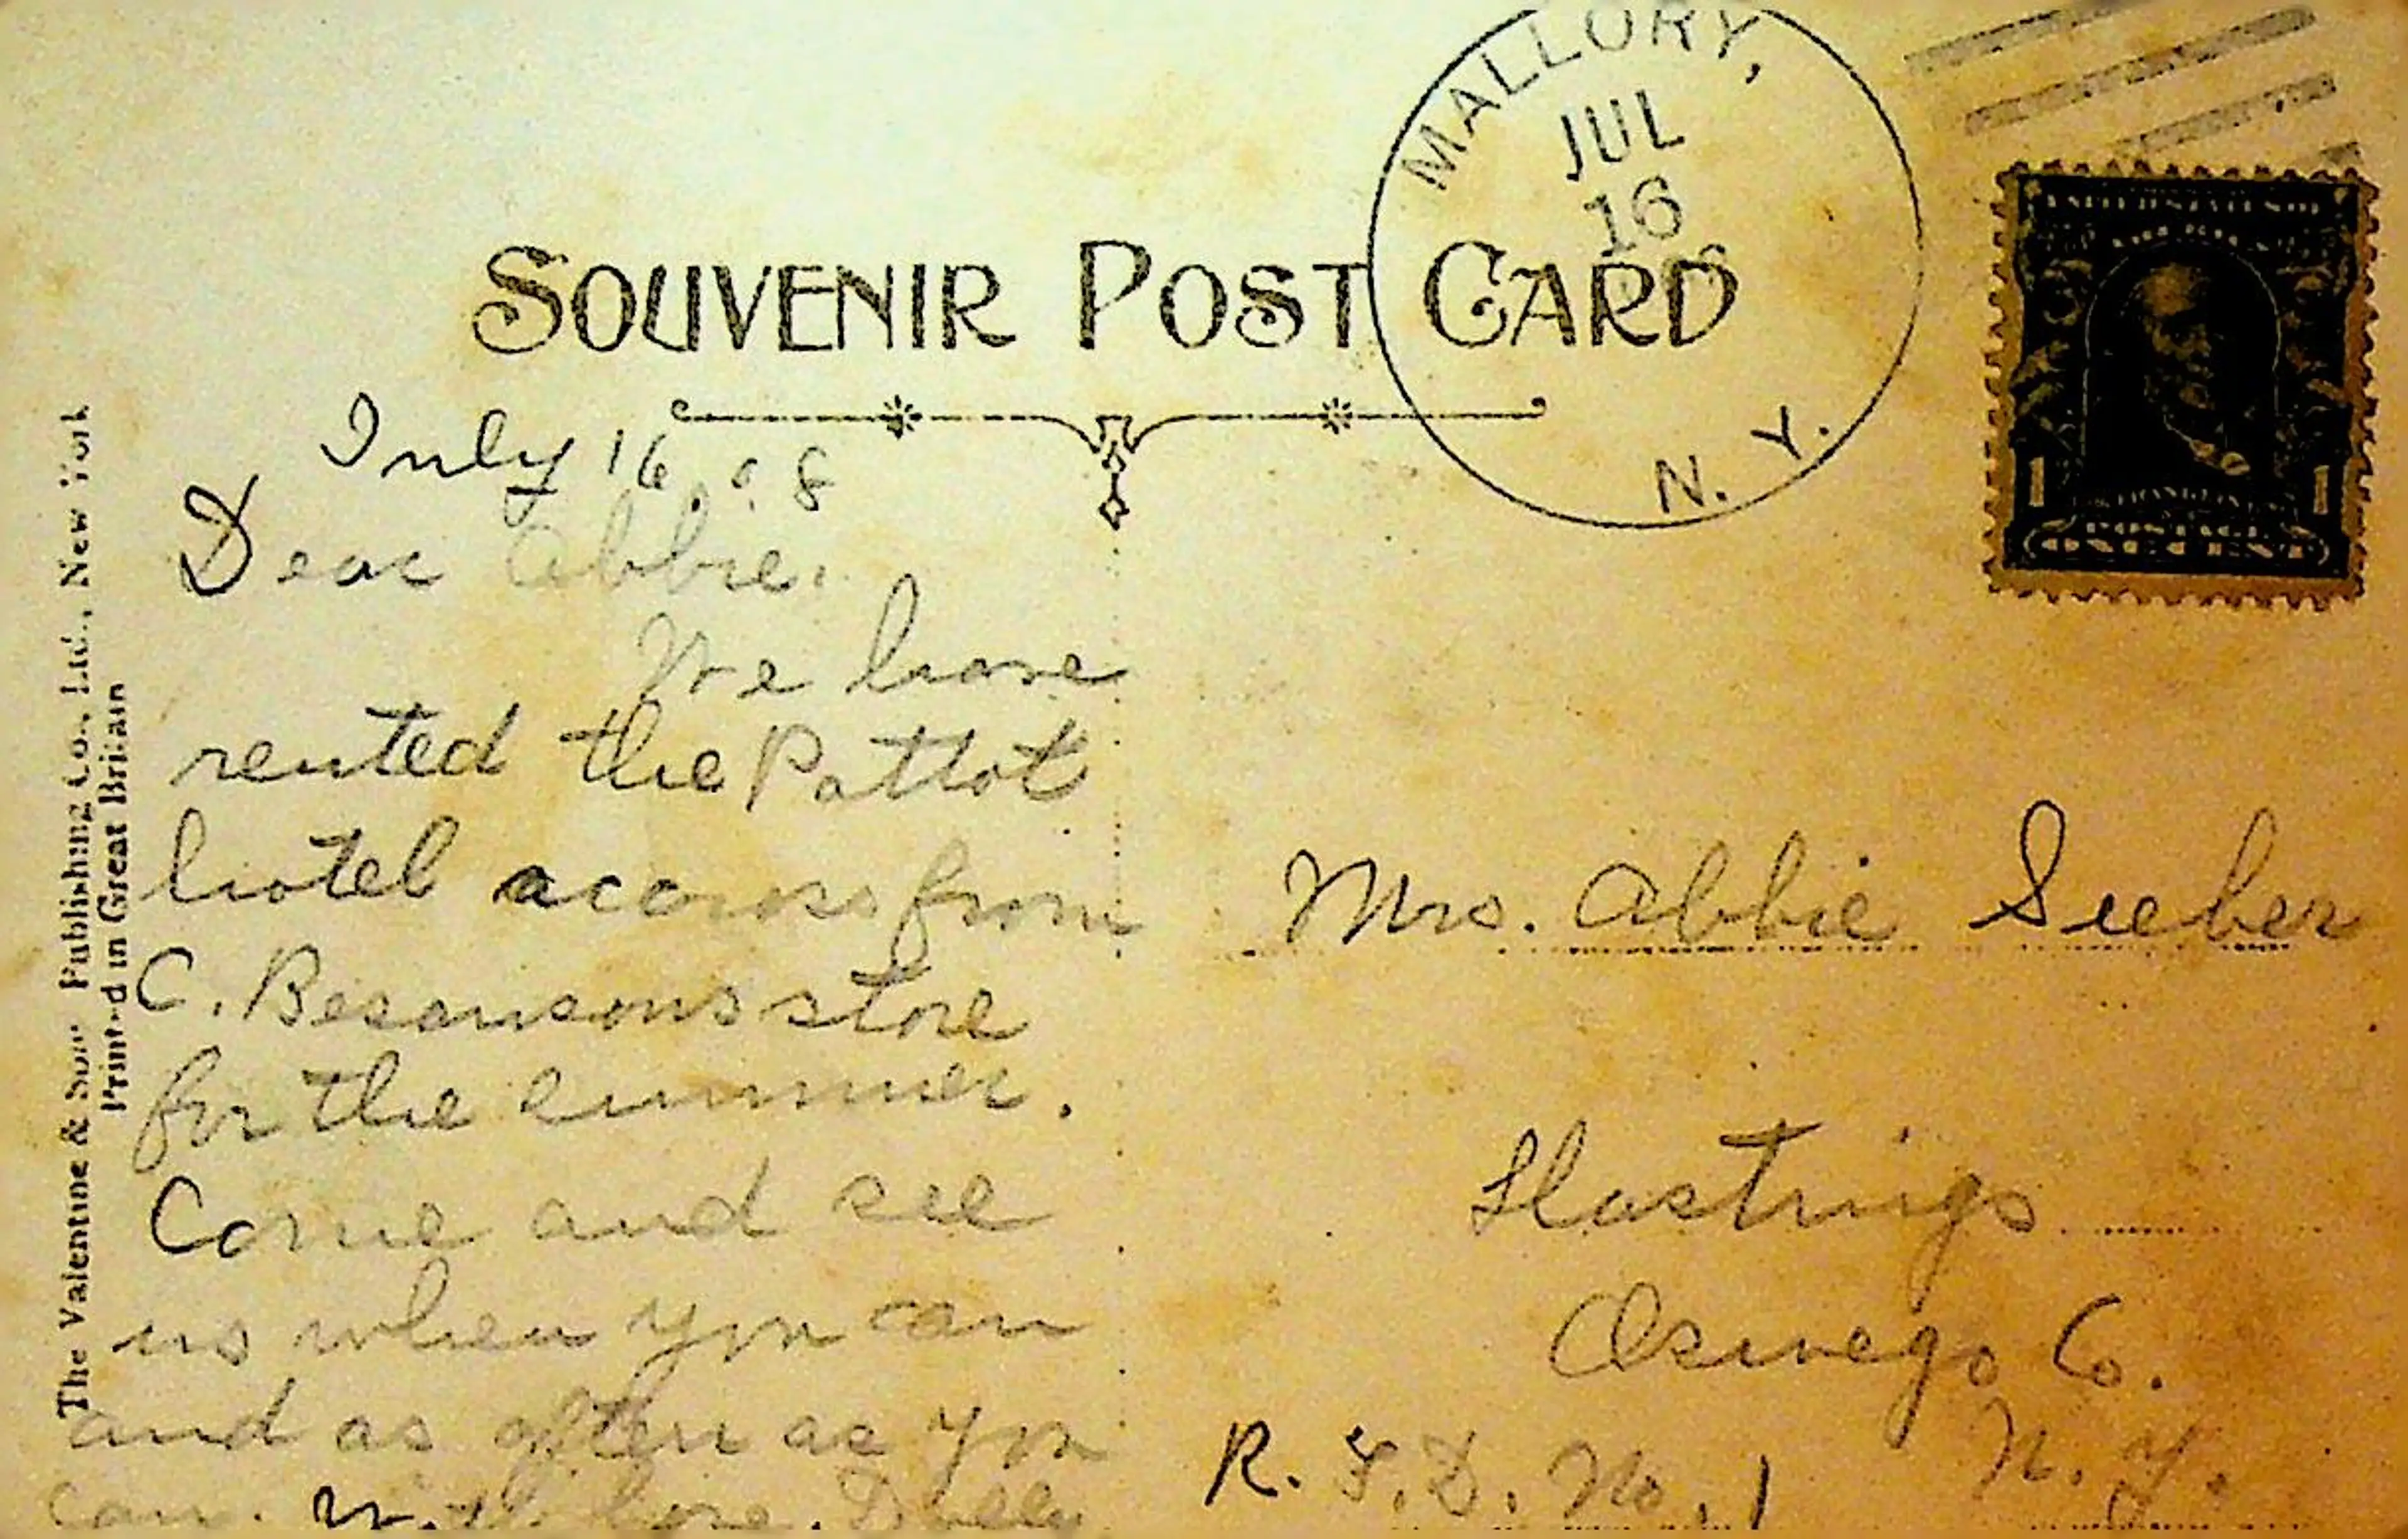 MALLORY,
JUL
16
N. Y.
SOUVENIR POST CARD
UNITED STATES OF
1 FRANKLIN 1
POSTAGE
ONE CENT
The Valentine & Sons Publishing Co., Ltd., New York
Printed in Great Britain
July 16, 08
Dear Abbie.
We have
rented the Pattot
hotel across from
C. Besansons store
for the summer.
Come and see
us when you can
and as often as you
can. With love. Dolly
Mrs. Abbie Sieber
Hastings
Oswego Co.
R. F. D. No. 1 N. Y.